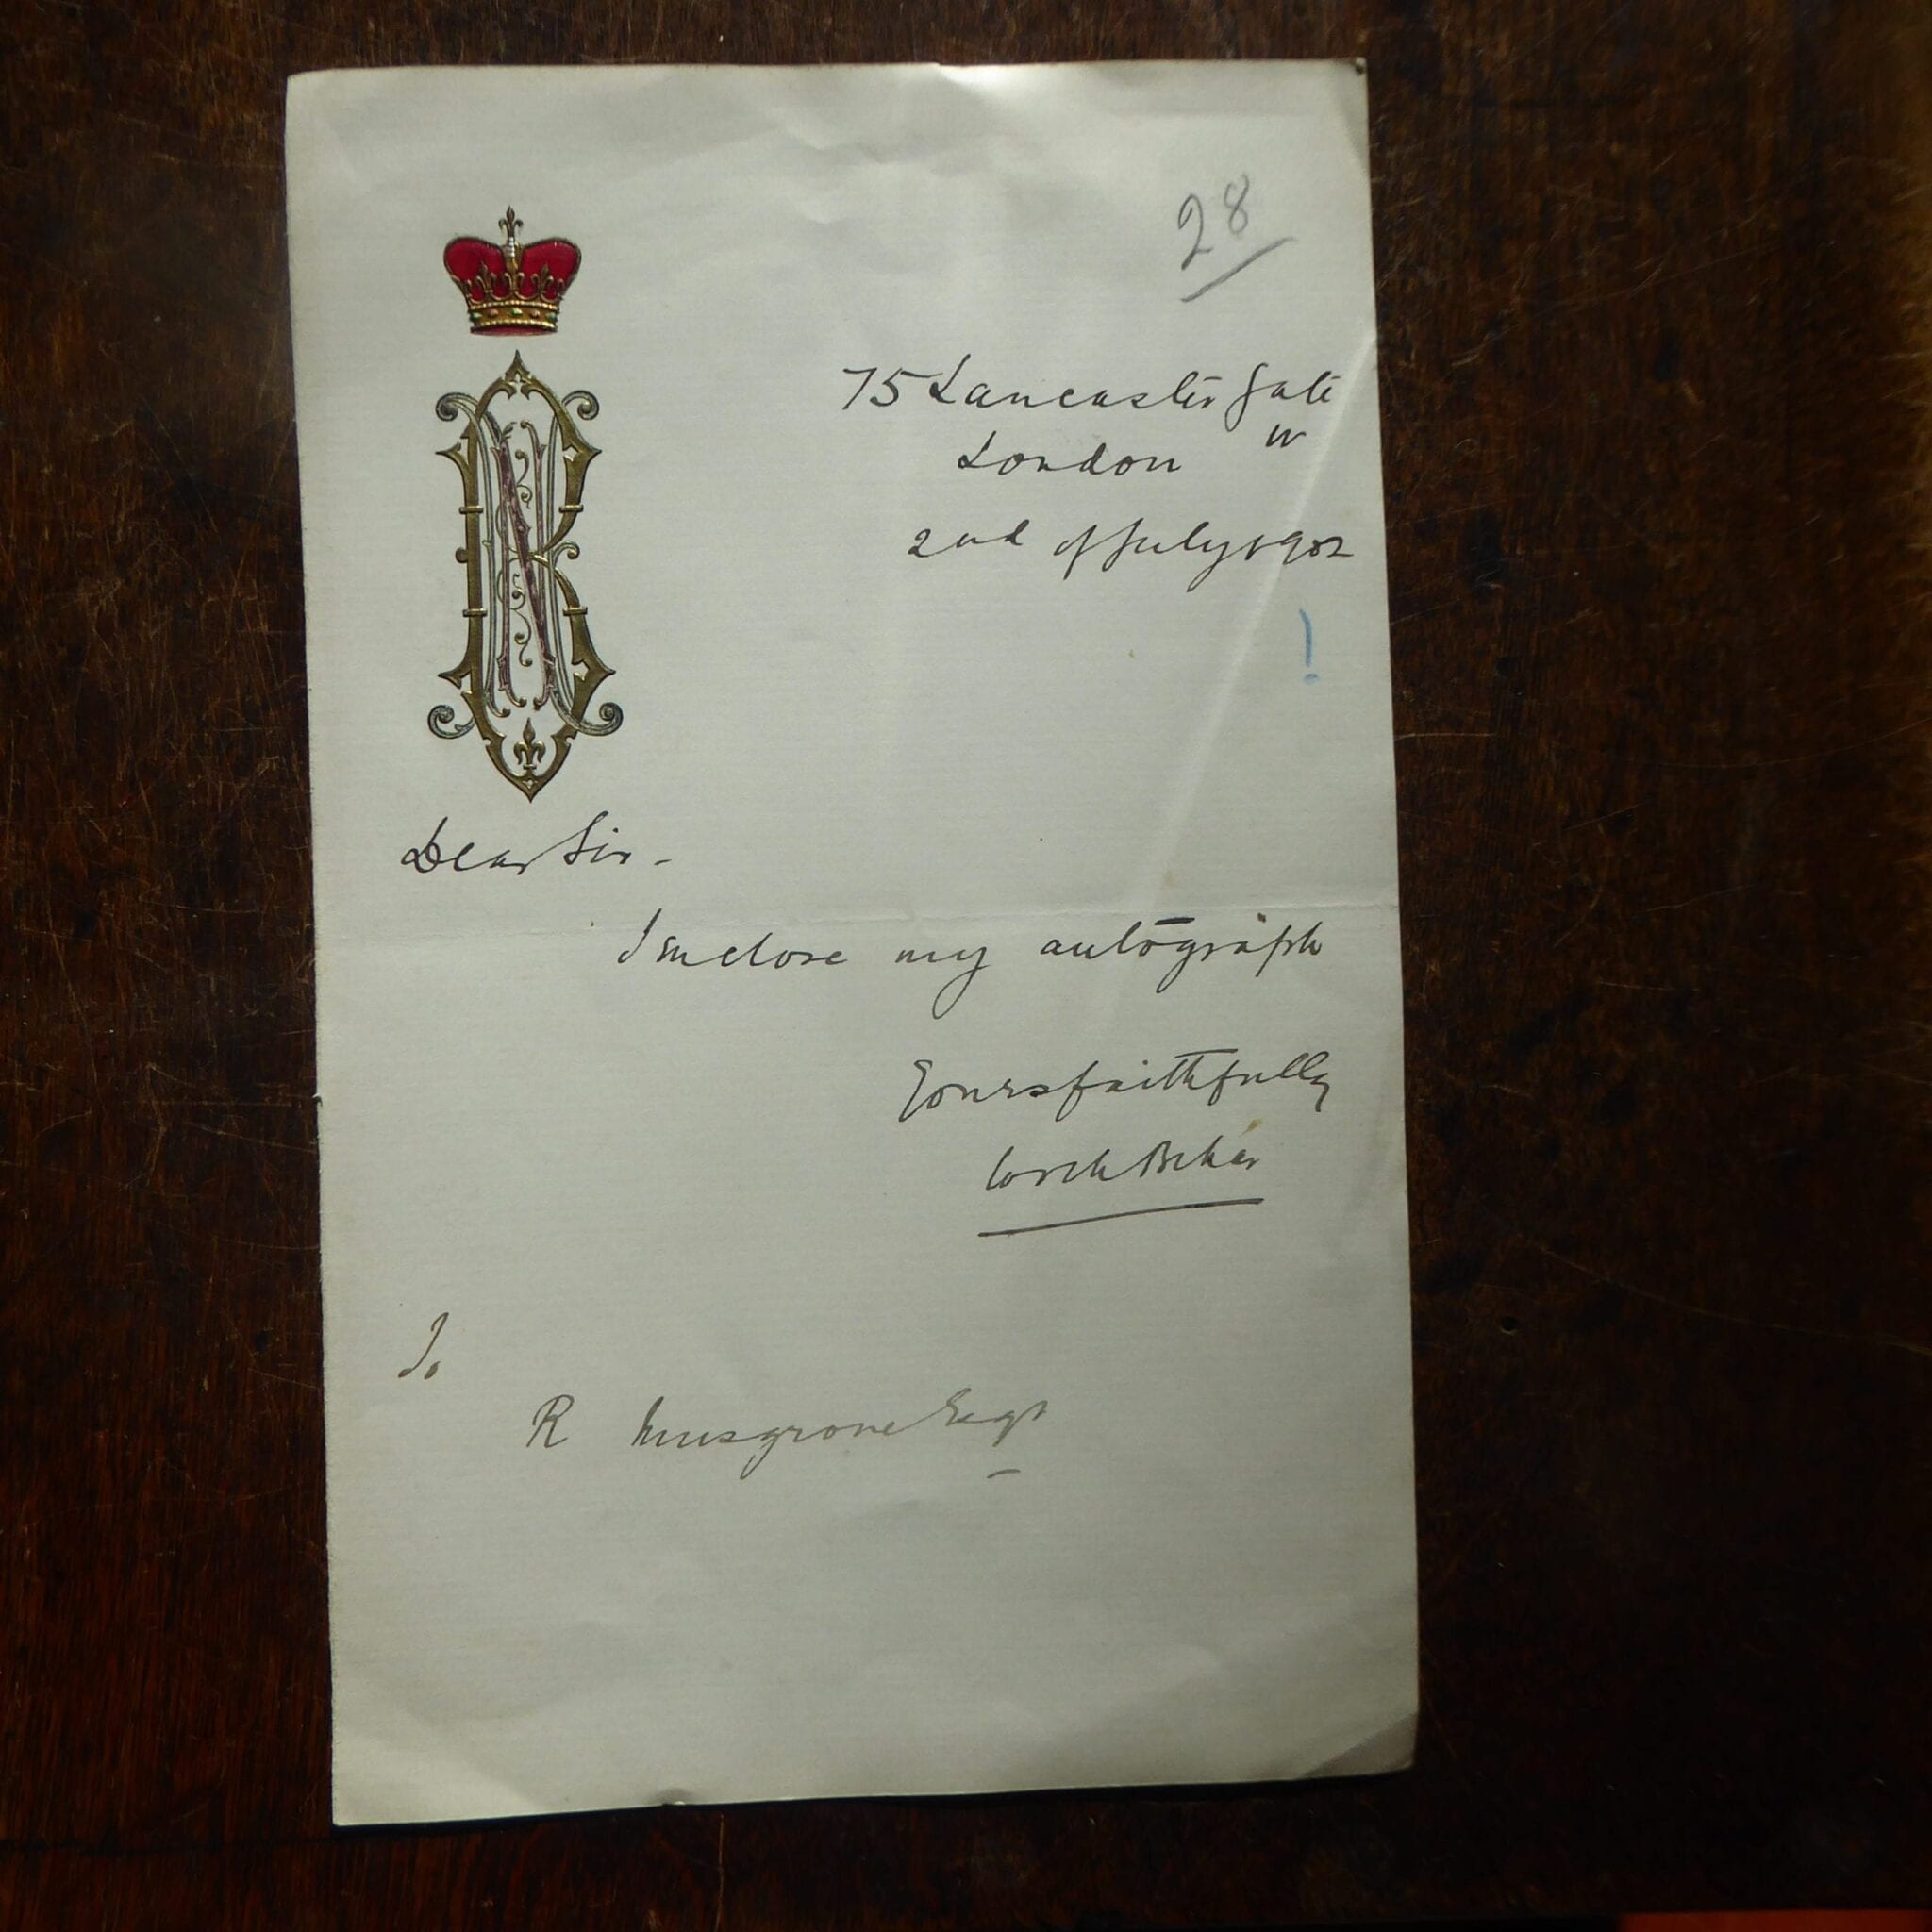 28
75 Lancaster Gate
London W
2nd of July 1902
!
Dear Sir -
I enclose my autograph
Yours faithfully
Cooch Behar
To
R Musgrove Esqr